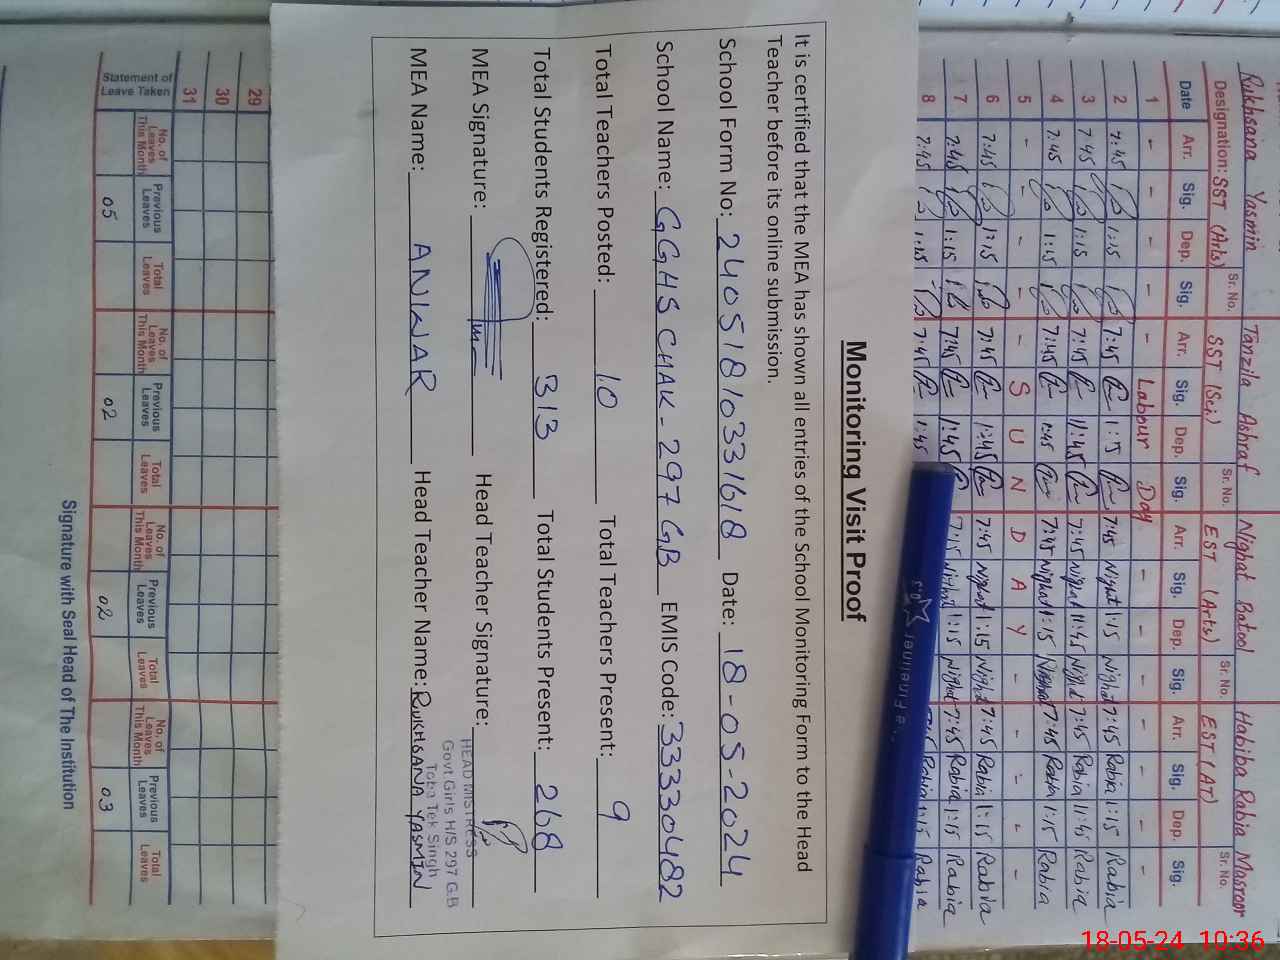 Monitoring Visit Proof
It is certified that the MEA has shown all entries of the School Monitoring Form to the Head
Teacher before its online submission.
School Form No: 24051810331618 Date: 18-05-2024
School Name: GGHS CHAK-297 GB EMIS Code: 33330482
Total Teachers Posted: 10 Total Teachers Present: 9
Total Students Registered: 313 Total Students Present: 268
MEA Signature: Head Teacher Signature:
HEAD MISTRESS
Govt Girls H/S 297 G.B
Toba Tek Singh
MEA Name: ANWAR Head Teacher Name: RUKHSANA YASMIN
Rukhsana Yasmin Tanzila Ashraf Nighat Batool Habiba Rabia Masroor
Sr. No. Sr. No. Sr. No. Sr. No.
Designation: SST (Arts) SST (Sci) EST (Arts) EST (AT)
Date Arr. Sig. Dep. Sig. Arr. Sig. Dep. Sig. Arr. Sig. Dep. Sig. Arr. Sig. Dep. Sig.
1 - - - - - Labour Day - - - - - - - -
2 7:45 1:15 7:45 1:15 7:45 Nighat 1:15 Nighat 7:45 Rabia 1:15 Rabia
3 7:45 1:15 7:45 11:45 7:45 Nighat 11:45 Nighat 7:45 Rabia 11:45 Rabia
4 7:45 1:15 7:45 1:45 7:45 Nighat 1:15 Nighat 7:45 Rabia 1:15 Rabia
5 - - - - - S U N D A Y - - - - -
6 7:45 1:15 7:45 1:45 7:45 Nighat 1:15 Nighat 7:45 Rabia 1:15 Rabia
7 7:45 1:15 7:45 1:45 7:15 Nighat 1:15 Nighat 7:45 Rabia 1:15 Rabia
8 7:45 1:15 7:45 1:45 Rabia 1:15 Rabia
29
30
31
Statement of Leave Taken
No. of Leaves This Month Previous Leaves Total Leaves No. of Leaves This Month Previous Leaves Total Leaves No. of Leaves This Month Previous Leaves Total Leaves No. of Leaves This Month Previous Leaves Total Leaves
05 02 02 03
Signature with Seal Head of The Institution
18-05-24 10:36